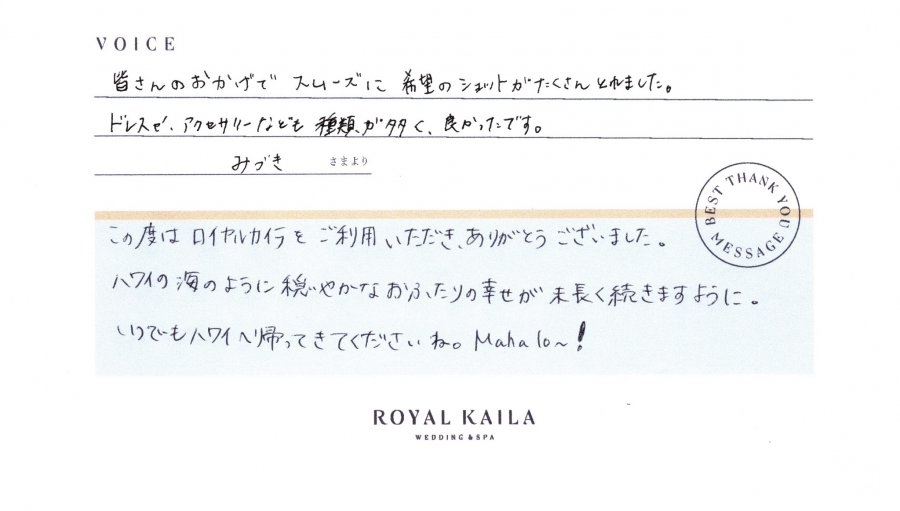 VOICE
皆さんのおかげで スムーズに 希望のショットがたくさんとれました。
ドレスや、アクセサリーなども 種類が多く、良かったです。
みづき さまより
BEST THANK YOU MESSAGE
この度は ロイヤルカイラを ご利用いただき、ありがとうございました。
ハワイの海のように穏やかなおふたりの幸せが末長く続きますように。
いつでもハワイへ帰ってきてくださいね。Mahalo~!
ROYAL KAILA
WEDDING & SPA